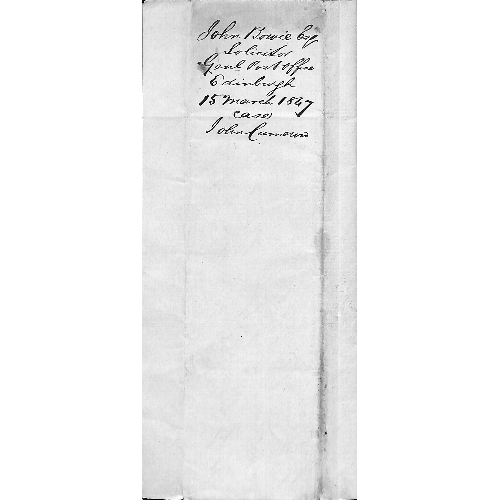 John Bowie Esq
Solicitor
Genl Post Office
Edinburgh
15 March 1847
case
John Cameron